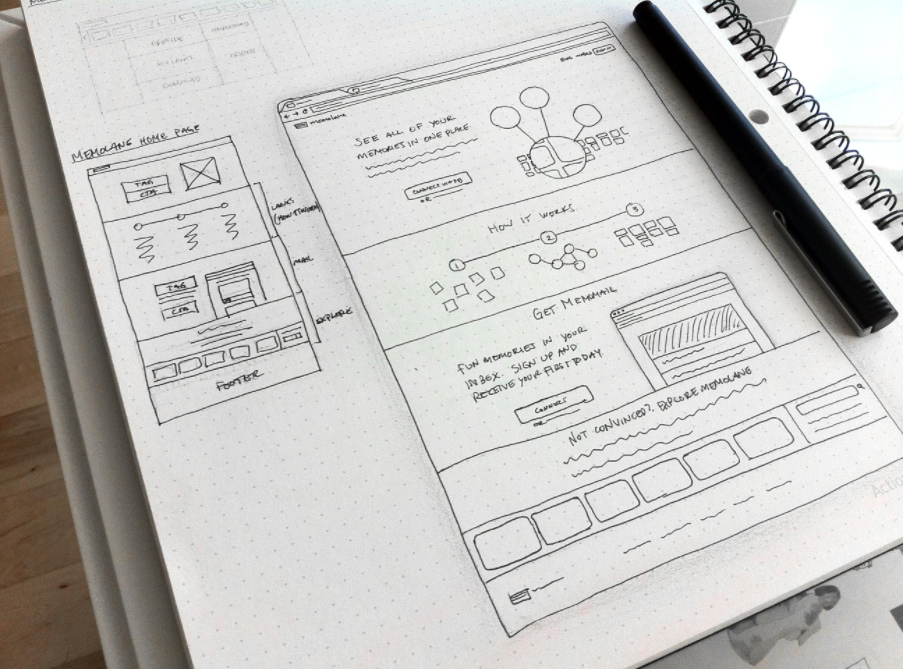 PROFILE
MEMOLANE HOME PAGE
TAG
CTA
LANES
(HOW IT WORKS)
TAG
CTA
MAIL
EXPLORE
FOOTER
memolane
SEE ALL OF YOUR
MEMORIES IN ONE PLACE
OR
HOW IT WORKS
1
2
3
GET MEMOMAIL
FUN MEMORIES IN YOUR
INBOX. SIGN UP AND
RECEIVE YOUR FIRST TODAY.
CONNECT
OR
NOT CONVINCED? EXPLORE MEMOLANE
Action